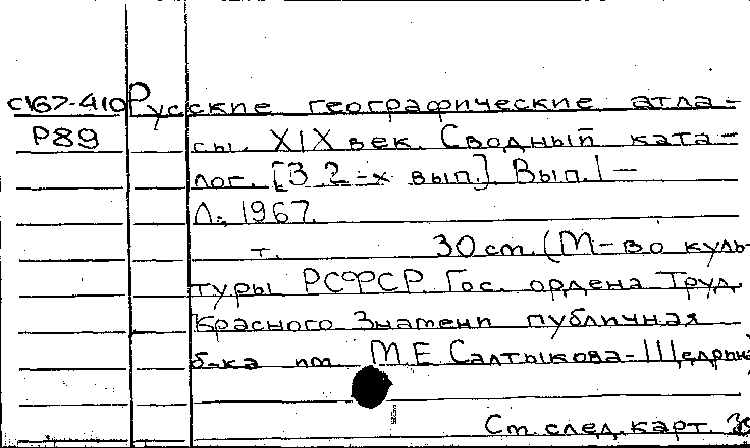 С167-410 Русские географические атла-
Р89 сы. XIX век. Сводный ката-
лог. [В 2-х вып.]. Вып.1—
Л., 1967.
т. 30 см. (М-во куль-
туры РСФСР. Гос. ордена Труд.
Красного Знамени публичная
б-ка им. М.Е. Салтыкова-Щедрина
См. след. карт.